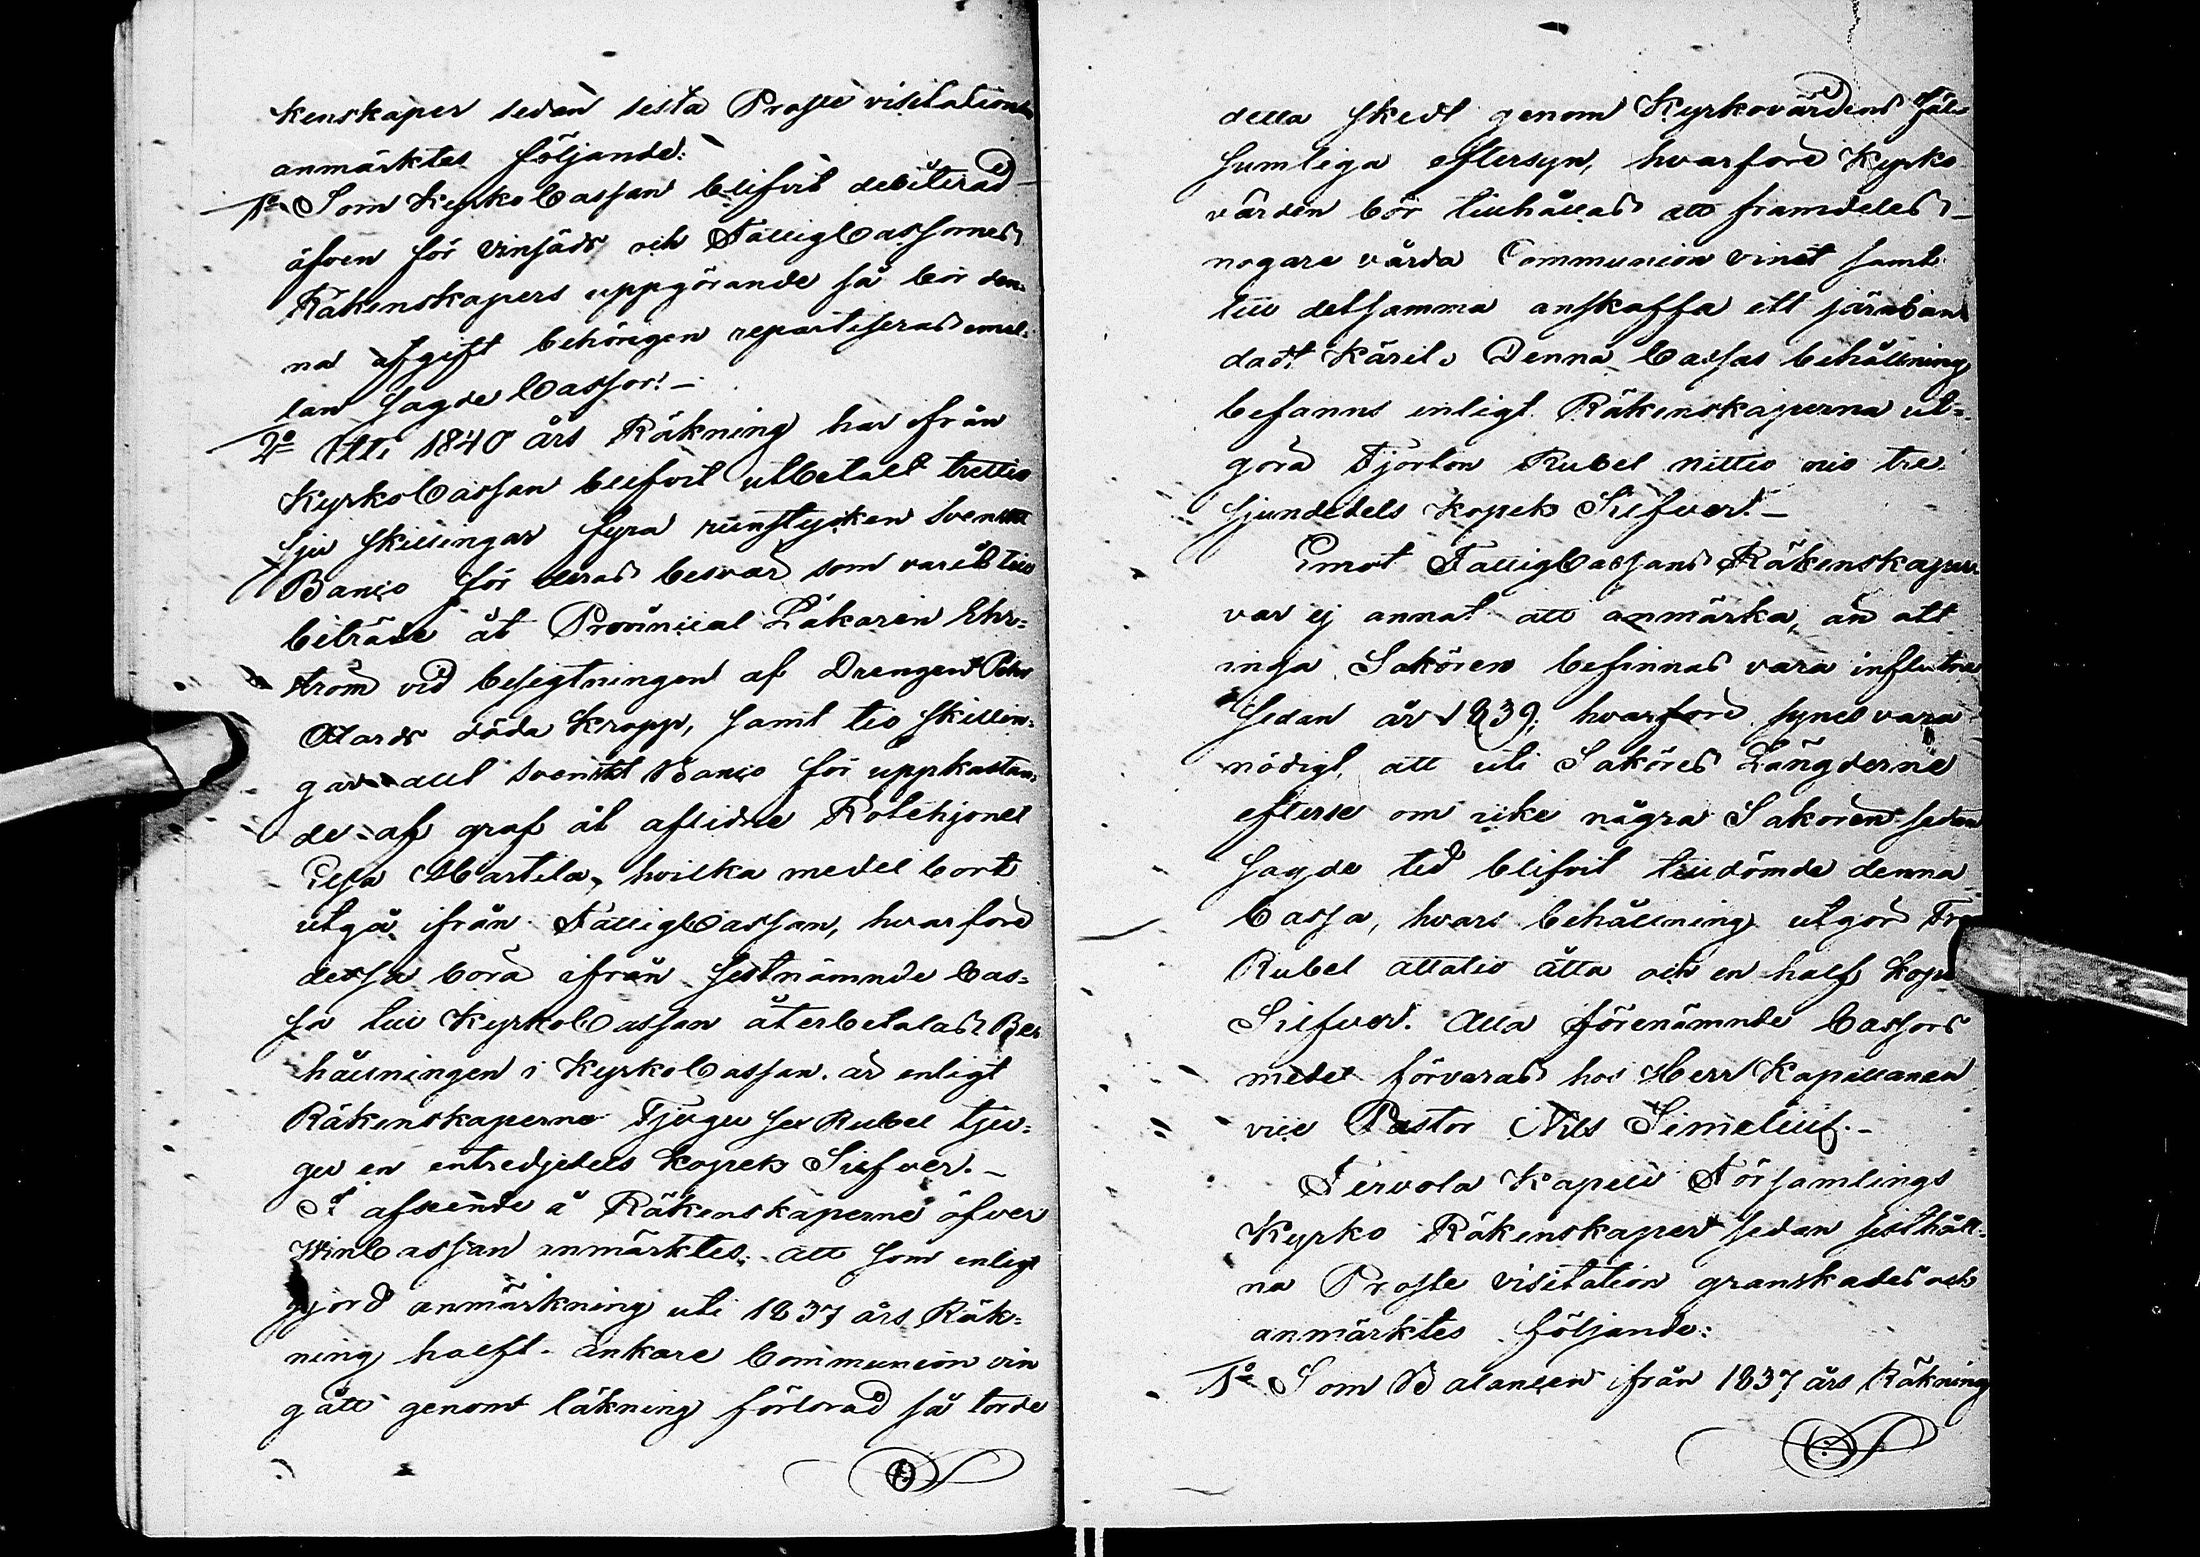 kenskaper sedan sista Proste visitationen
anmärktes följande:
1o Som KyrkoCassan blifvit debiterad
äfven för Vinsäds och FattigCassornes
Räkenskapers uppgörande så bör den=
na afgift behörigen repartiseras emel=
lan sagde Cassor. –
2o Uti 1840 års Räkning har ifrån
KyrkoCassan blifvit utbetalt trettio
sju skillingar fyra runstycken Svenskt
Banco för deras besvär som varit till
biträde åt Provincial Läkaren Ehr=
ström vid besigtningen af Drengen Pehr
döda kropp, samt tio skillin=
gar allt Svenskt Banco för uppkastan=
de af graf åt aflidne Rotehjonet
Elsa Martila, hvilka medel bort
utgå ifrån FattigCassan, hvarföre
dessa böra ifrån sistnämnde Cas=
sa till KyrkoCassan återbetalas. Be=
hållningen i KyrkoCassan är enligt
Räkenskaperne Tjugu sex Rubel tju=
gu en entredjedels kopek Silfver. –
I afseende å Räkenskaperne öfver
WinCassan anmärktes: att som enligt
gjord anmärkning uti 1837 års Räk=
ning halft ankare Communion vin
gått genom läkning förlorad så torde
detta skedt genom Kyrkovärdens för=
sumliga eftersyn, hvarföre Kyrko
värden bör tillhållas att framdeles
nogare vårda Communion vinet samt
till detsamma anskaffa ett järnban
dadt käril. Denna Cassas behållning
befanns enligt Räkenskaperna ut=
göra Fjorton Rubel nittio nio tre
sjundedels kopek Silfver. –
Emot FattigCassans Räkenskaper
var ej annat att anmärka, än att
inga Sakören befinnas vara influtna
sedan år 1839; hvarföre synes vara
nödigt, att uti Saköres Längderne
efterse om icke några Sakören sedan
sagde tid blifvit tilldömde denna
Cassa, hvars behållning utgör
Rubel åttatio åtta och en half kopek
Silfver. Alla förenämnde Cassors
medel förvaras hos Herr Kapellanen
vice Pastor Nils Simelius. –
Tervola Kapell Församlings
Kyrko Räkenskaper sedan sisthåll=
na Proste visitation granskades och
anmärktes följande:
1o Som Balancen ifrån 1837 års Räkning